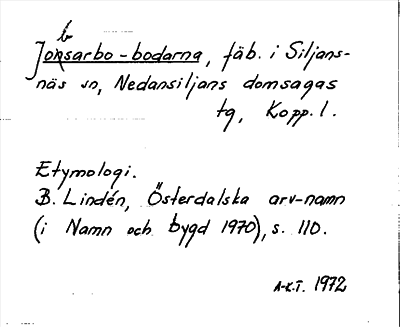 b
Jonsarbo-bodarna, fäb. i Siljans-
näs sn, Nedansiljans domsagas
tg, Kopp. l.
Etymologi.
B. Lindén, Österdalska arv-namn
(i Namn och bygd 1970), s. 110.
A-K.T. 1972